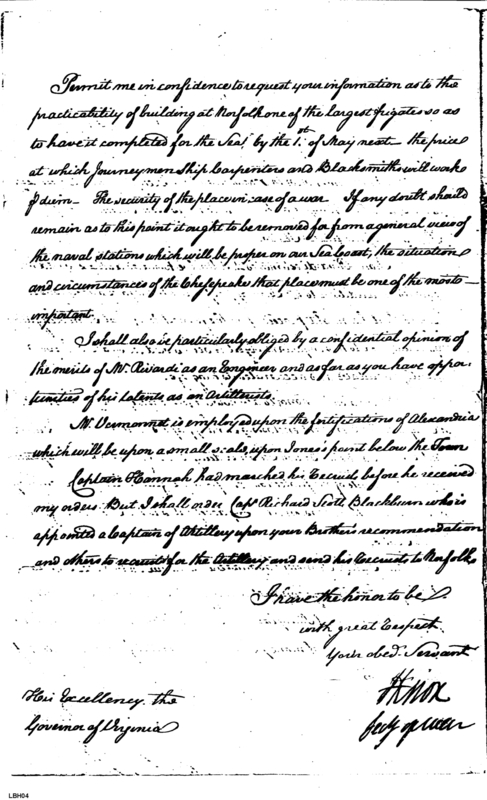 Permit me in confidence to request your information as to the
practicability of building at Norfolk one of the largest frigates so as
to have it completed for the Sea, by the 1st of May next – the price
at which Journeymen Ship Carpenters and Blacksmiths will work
diem – The security of the place in case of a war. If any doubt should
remain as to this point it ought to be removed for from a general view of
the naval stations which will be proper on our Sea Coast, the situation
and circumstances of the Chesepeake that place must be one of the most
important.
I shall also be particularly obliged by a confidential opinion of
the merits of Mr. Rivardi as an Engineer and as far as you have oppor-
tunities of his talents as an Artillerist.
Mr. Vermonnet is employed upon the fortifications of Alexandria
which will be upon a small scale, upon Jones's point below the Town
Captain Hannah had marched his Recruits before he received
my orders. But I shall order Capt. Richard Scott Blackburn who is
appointed a Captain of Artillery upon your Brother's recommendation
and others to recruit for the Artillery and send his Recruits to Norfolk
I have the honor to be
with great Respect
Your obed. Servant
HKnox
Secy of War
His Excellency the
Governor of Virginia
LBH04